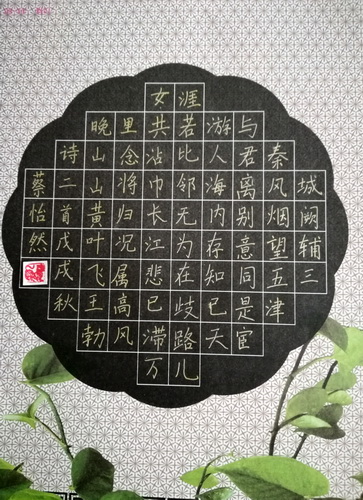 城阙辅三
秦风烟望五津
与君离别意同是宦
游人海内存知已天
涯若比邻无为在歧路儿
女共沾巾长江悲已滞万
里念将归况属高风
晚山山黄叶飞王勃
诗二首戊戌秋
蔡怡然